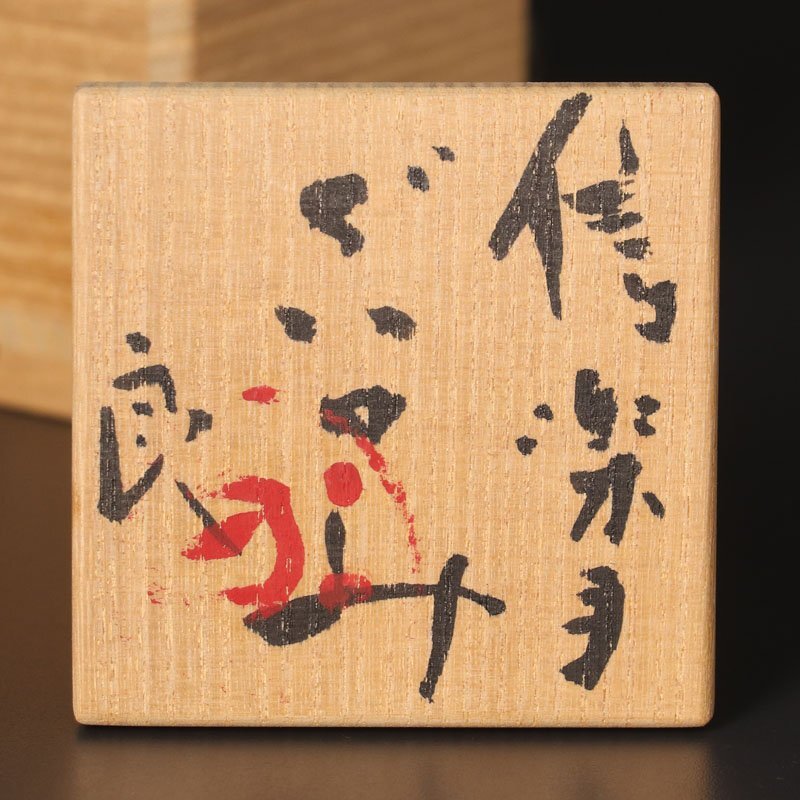 信楽
ぐいのみ
良